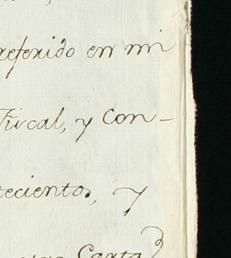 referido en mi
Fiscal, y Con-
teciento, y
Carta